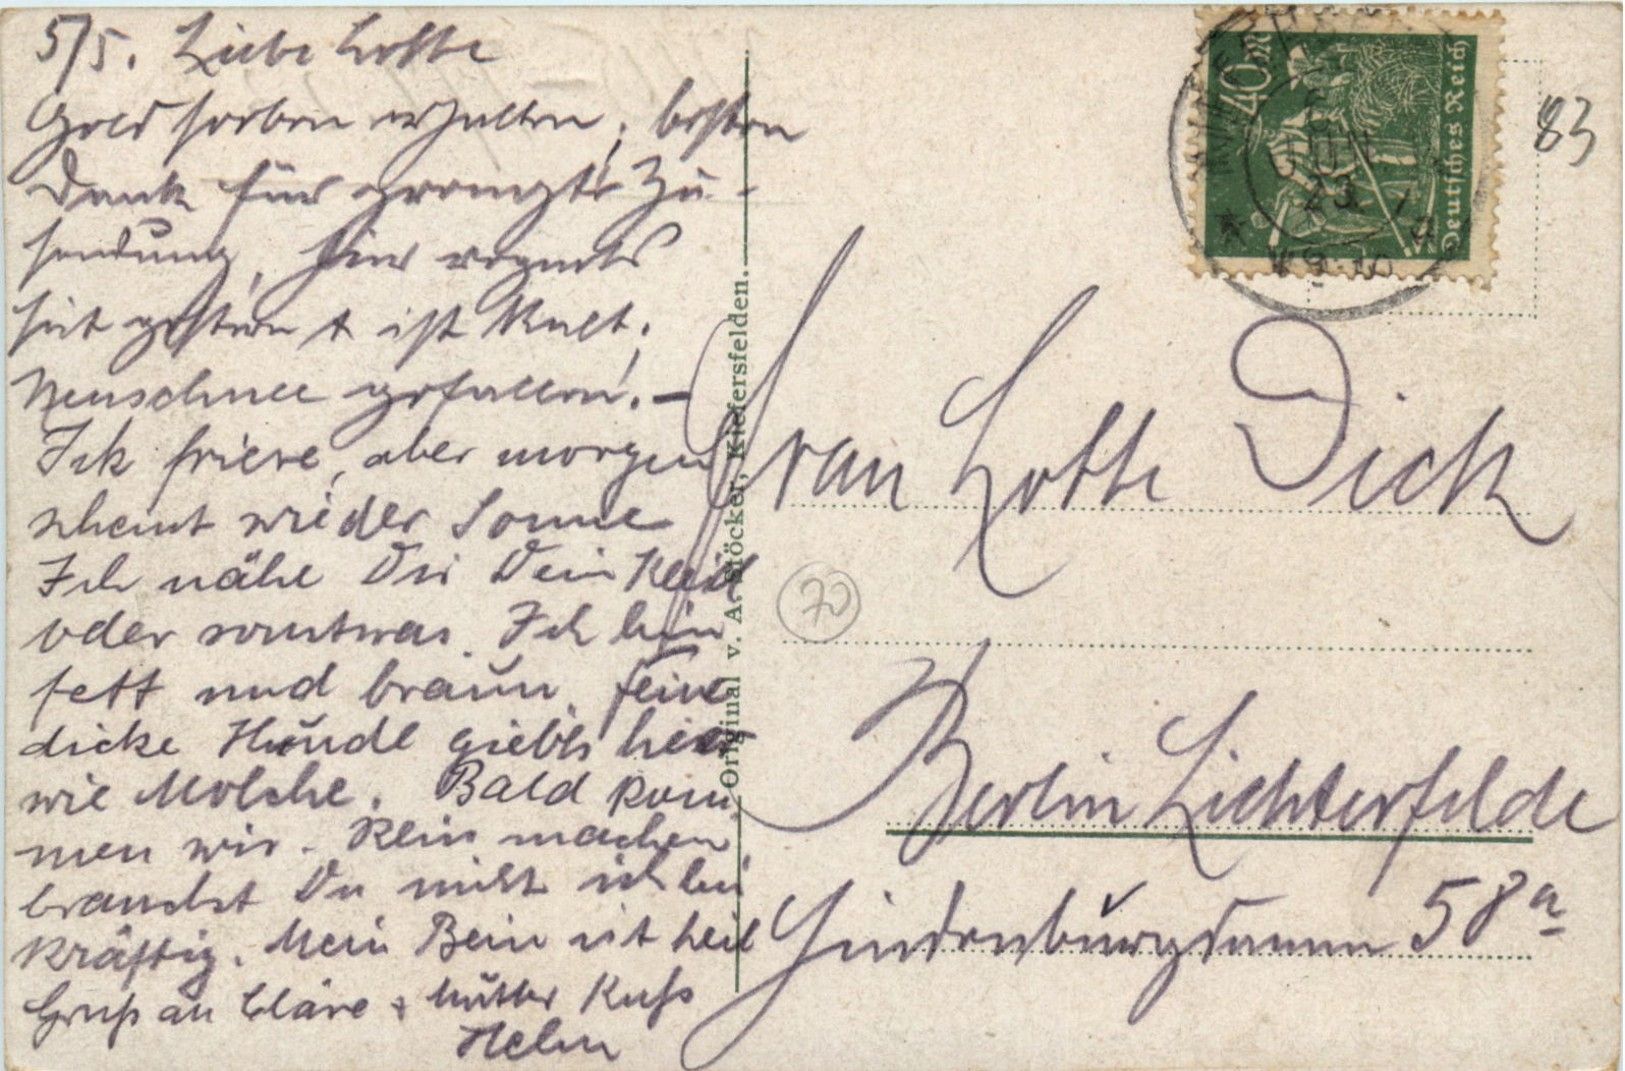 5/5. Liebe Lotte
Geld soeben erhalten, besten
Dank für prompte Zu-
sendung, hier regnets
seit gestern + ist kalt.
Neuschnee gefallen. —
Ich friere, aber morgen
scheint wieder Sonne
Ich nähe Dir Dein Kleid
oder sonstwas. Ich bin
fett und braun. Feine
dicke Hunde giebts hier
wie Molche. Bald kom
men wir. Rein machen
brauchst Du nicht ich bin
kräftig. Mein Bein ist heil
Gruß an Cläre + Mutter Kuss
Original v. A. Stöcker, Kiefersfelden.
40 M
Deutsches Reich
JUN
23
83
Frau Lotte Dick
70
Berlin Lichterfelde
Hindenburgdamm 58a